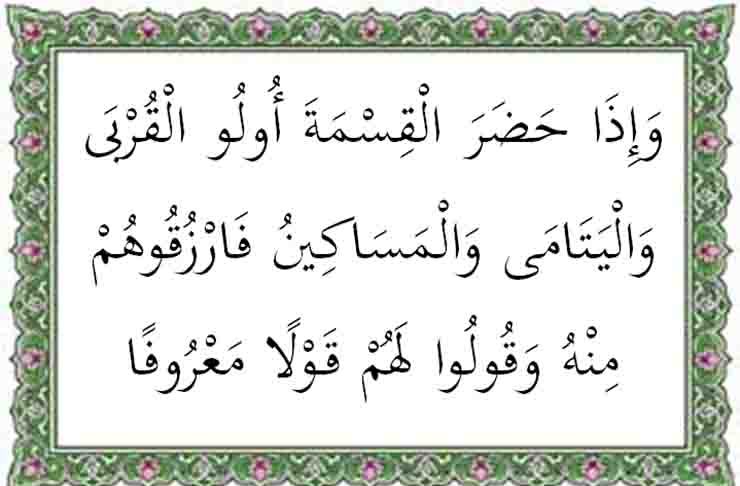 وَإِذَا حَضَرَ الْقِسْمَةَ أُولُو الْقُرْبَى
وَالْيَتَامَى وَالْمَسَاكِينُ فَارْزُقُوهُمْ
مِنْهُ وَقُولُوا لَهُمْ قَوْلًا مَعْرُوفًا